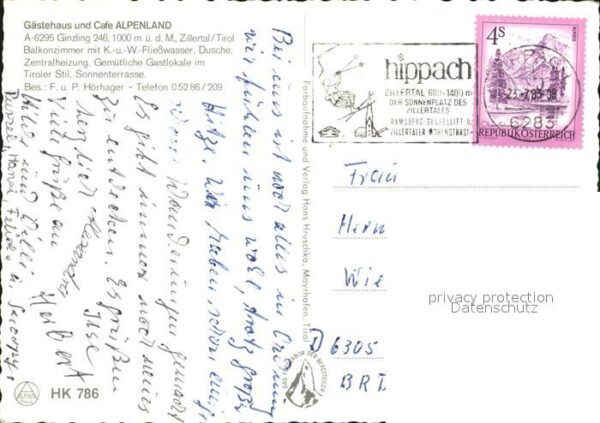 Gästehaus und Cafe ALPENLAND
A-6295 Ginzling 246, 1000 m ü. d. M., Zillertal/Tirol
Balkonzimmer mit K.- u. W.-Fließwasser, Dusche,
Zentralheizung. Gemütliche Gastlokale im
Tiroler Stil, Sonnenterrasse.
Bes.: F. u. P. Hörhager - Telefon 0 52 86 / 209
Bei uns ist noch alles in Ordnung
wir fühlen uns wohl, trotz großer
Hitze. Wir haben schon einige
Wanderungen gemacht
Es gibt immer noch neues
zu entdecken. Es grüßen
herzlich Alexandra
Ilse
Viele Grüße an Herbert
Farbaufnahme und Verlag Hans Hruschka, Mayrhofen, Tirol
hippach
ZILLERTAL 600-1400 m
DER SONNENPLATZ DES
ZILLERTALES
RAMSBERG-SESSELLIFT U.
ZILLERTALER HÖHENSTRASSE
23.-7.83-08
6283
4 S
REPUBLIK ÖSTERREICH
Frau
Hern
Wie
D 6305
BRD
privacy protection
Datenschutz
HK 786